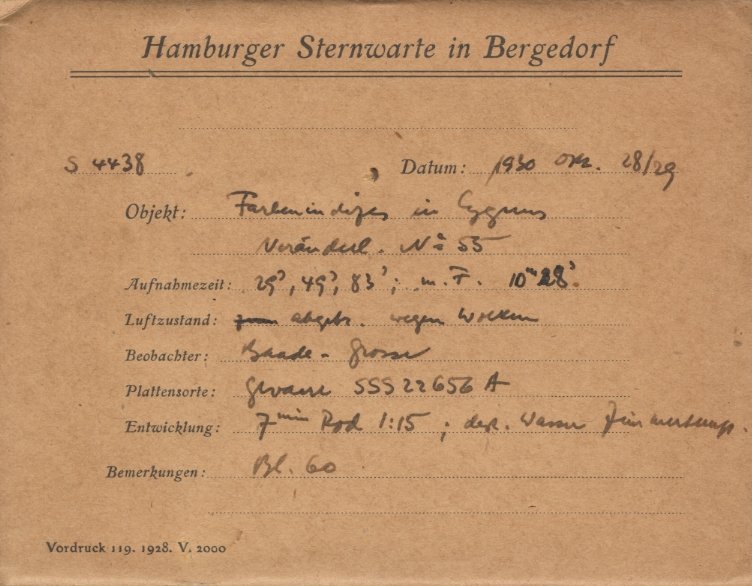 Hamburger Sternwarte in Bergedorf
S 4438 Datum: 1930 Okt. 28/29
Objekt: Farbenindizes in Cygnus
Veränderl. No 55
Aufnahmezeit: 29s, 49s, 83s; m. F. 10m 28s.
Luftzustand: abgebr. wegen Wolken
Beobachter: Baade - Grosse
Plattensorte: Gevaert SSS 22656 A
Entwicklung: 7min Rod 1:15; dest. Wasser Zimmertemp.
Bemerkungen: Bl. 60
Vordruck 119. 1928. V. 2000